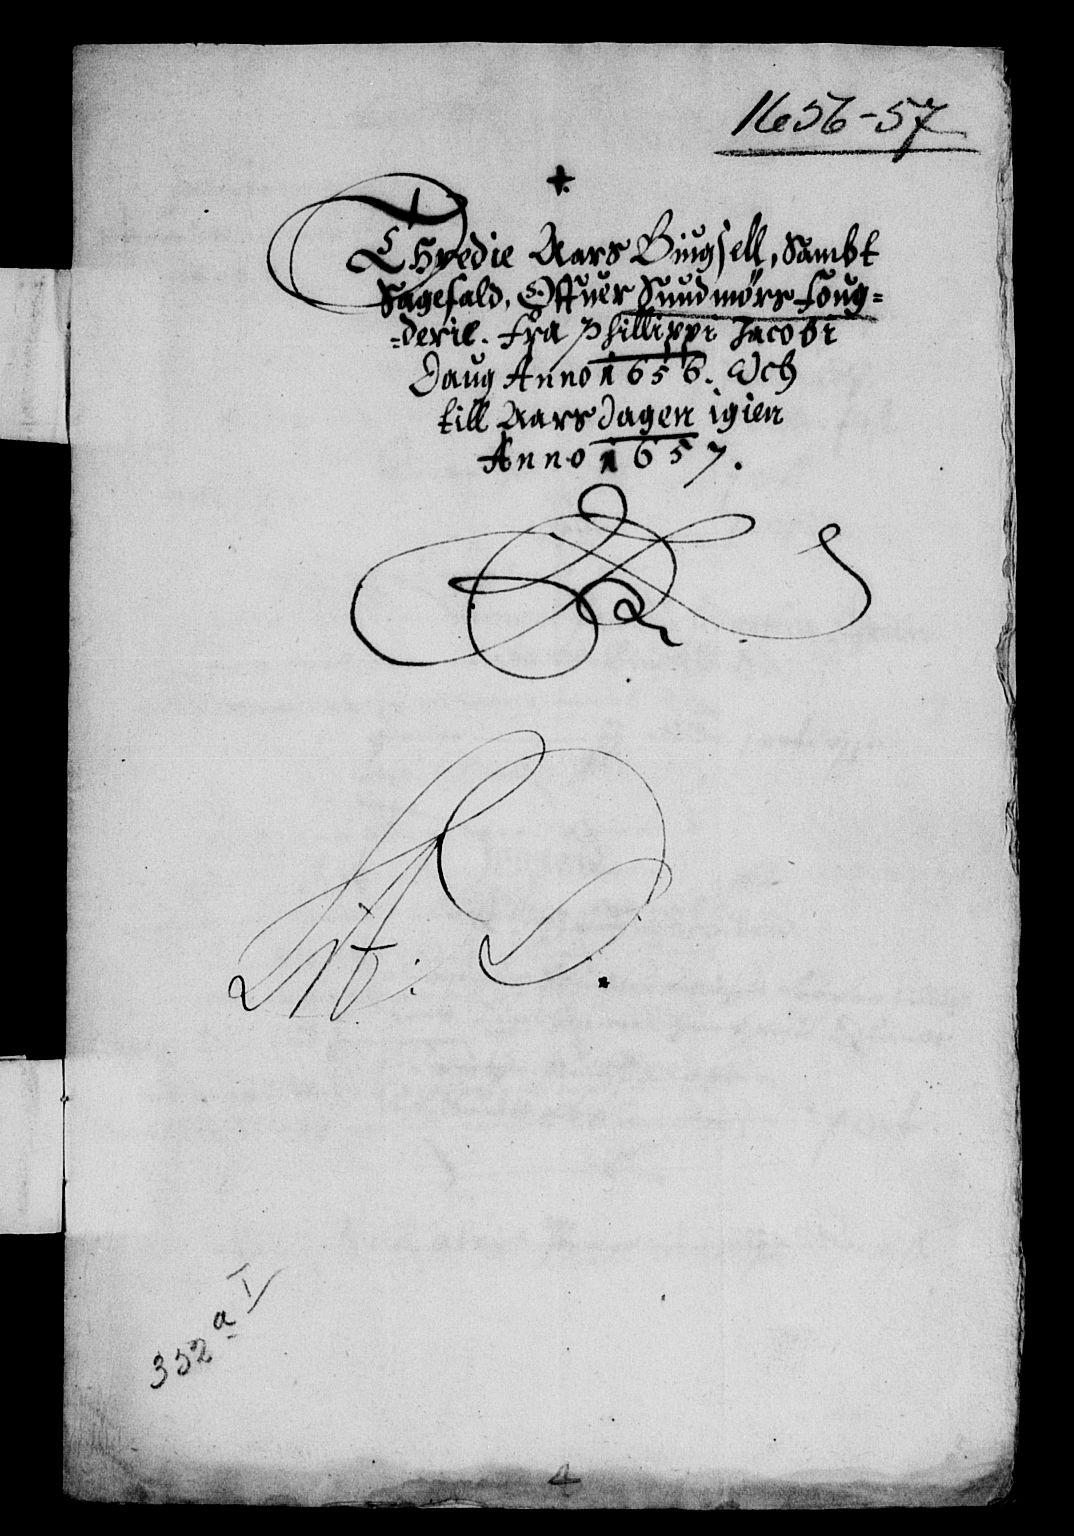 1656-57
Thredie Aars Bÿugsell, Sambt
Sagefald, Offuer Sundmørs foug=
=derie. fra Phillippi Jacobi
Daug Anno 1656. Och
till Aars dagen igien
Anno 1657.
Lit: D.
352 a I
4